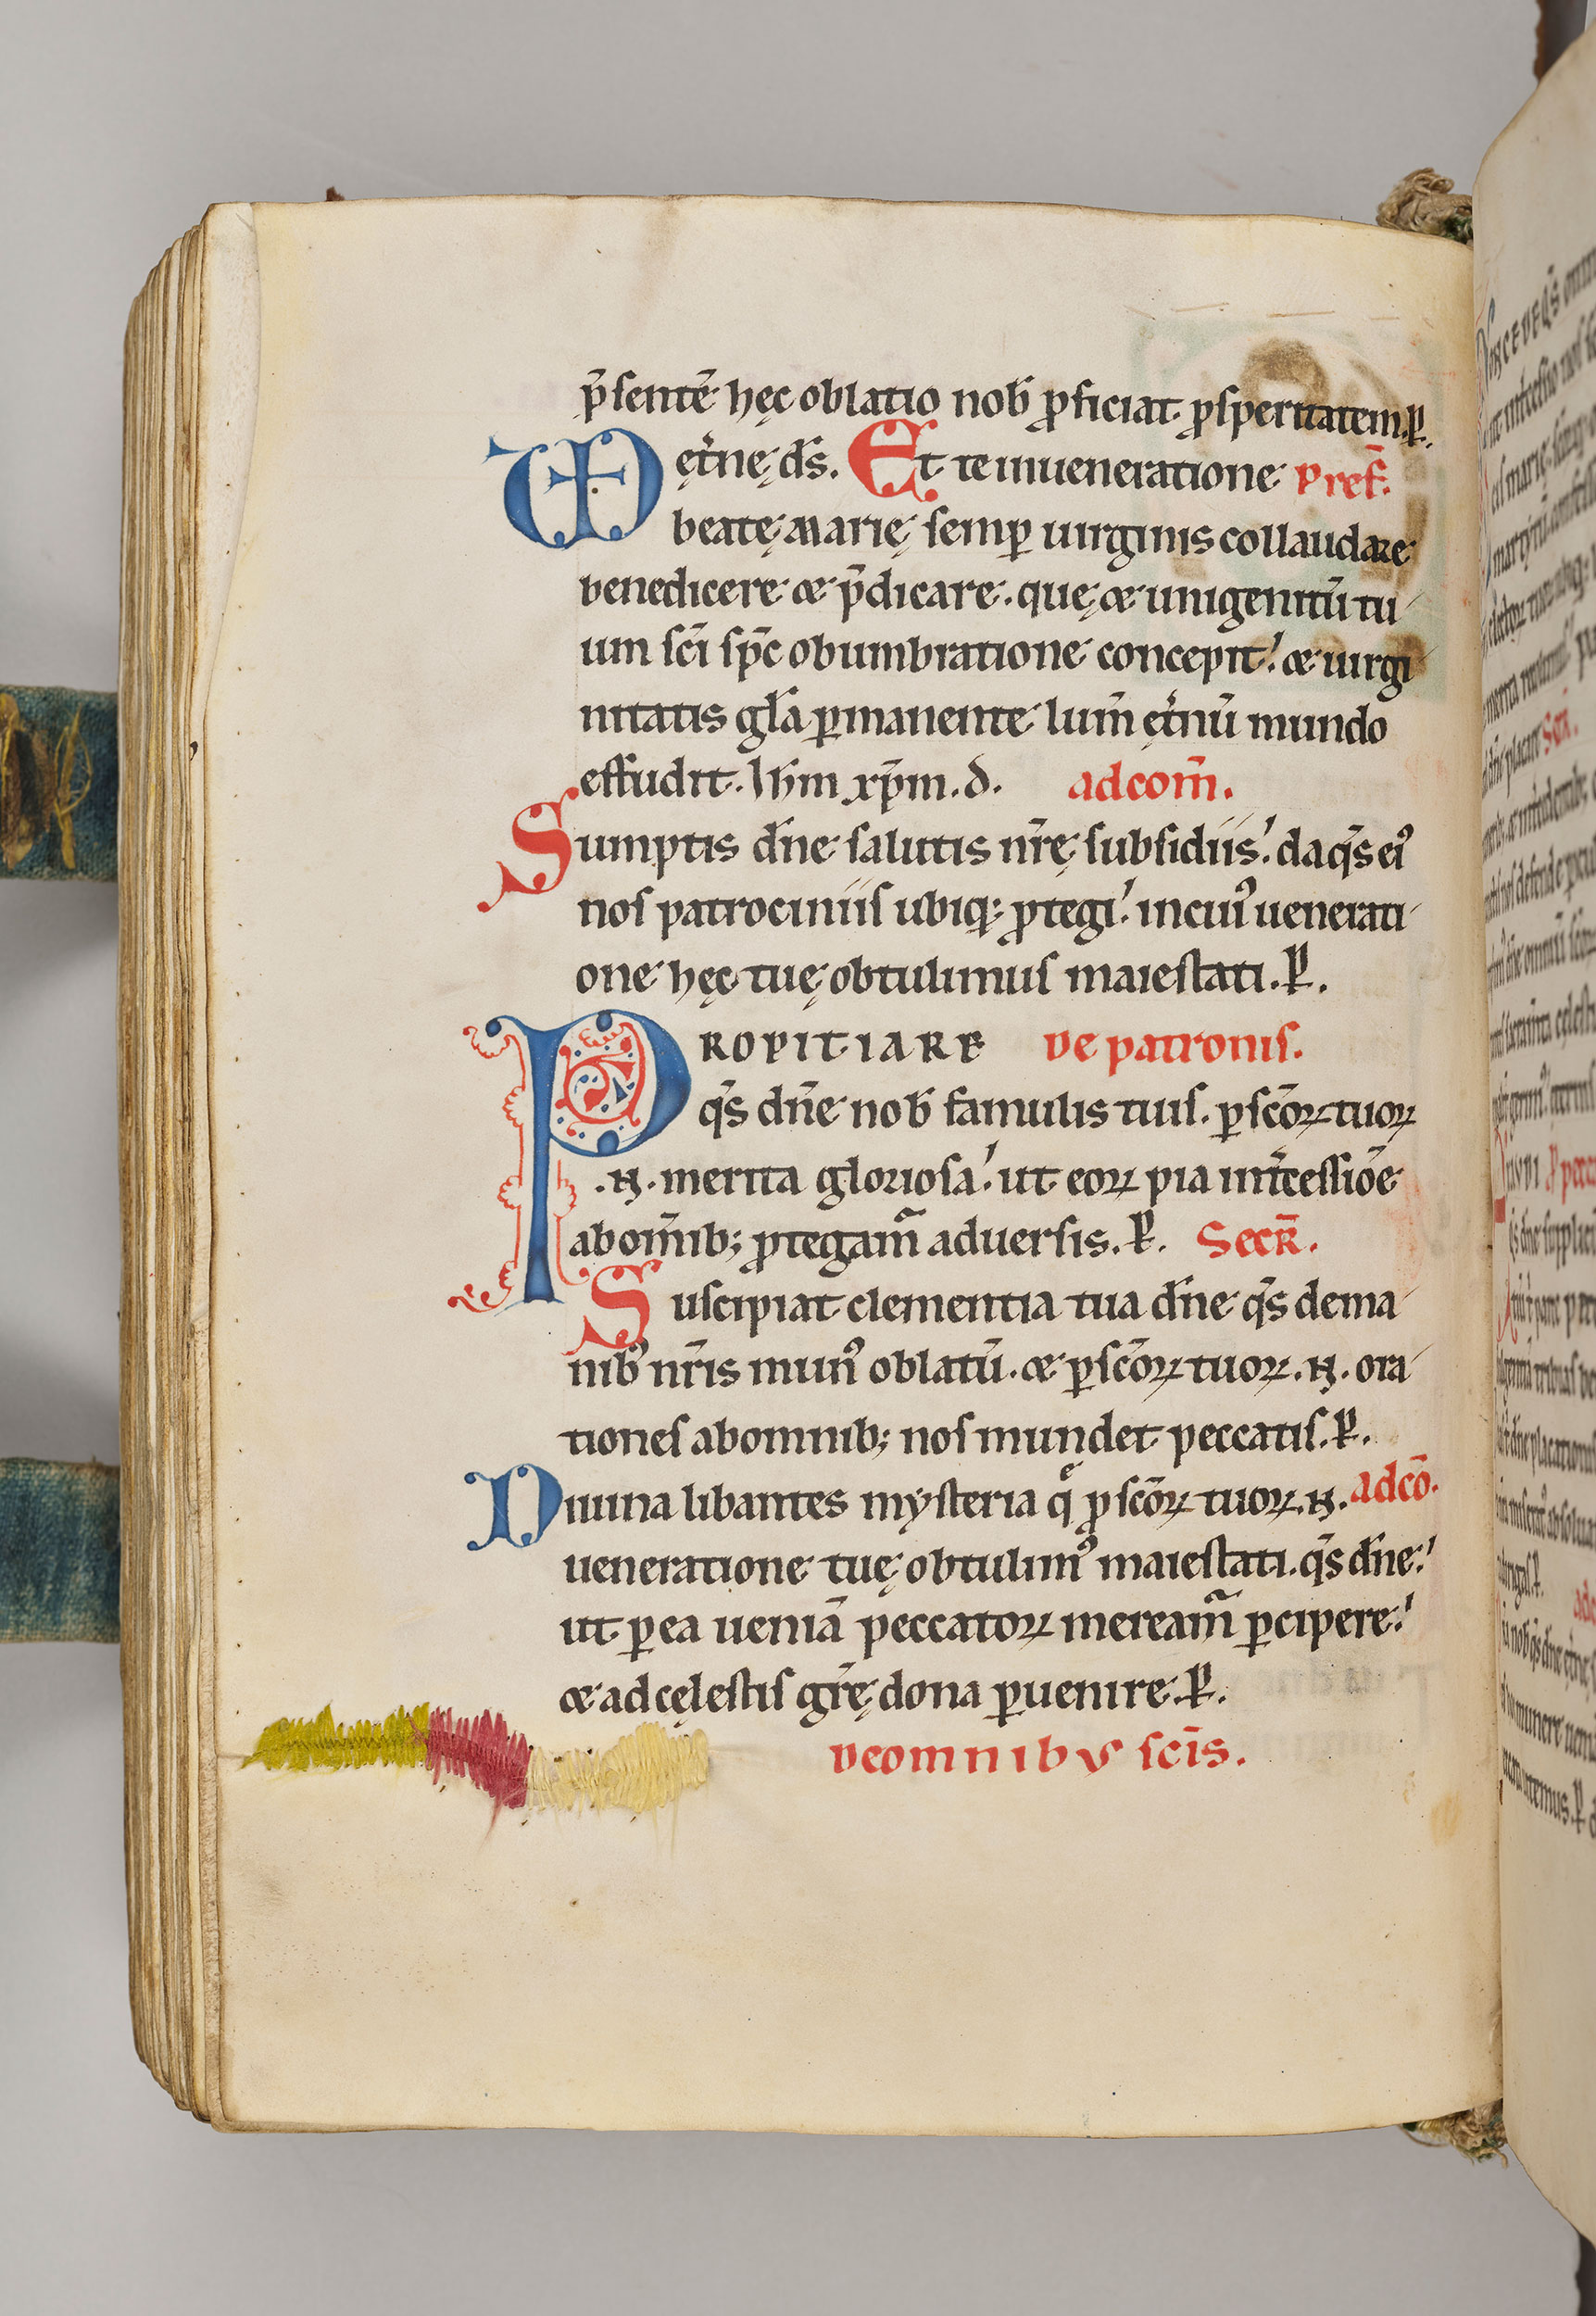 p̄sentē hęc oblatio nob̄ ꝓficiat ꝓsperitatem. ꝑ.
VD ęt̄nę d̄s. Et te in ueneratione Pref̄.
beatę marię semꝑ uirginis collaudare
benedicere & p̄dicare. quę & unigenitū tu
um sc̄i sp̄c obumbratione concepit. & uirgi
nitatis gl̄a ꝑmanente lum̄ ęt̄nū mundo
effudit. Ih̄m xp̄m. d. ad com̄.
Sumptis dn̄e salutis nr̄ę subsidiis. da q̄s eiꝰ
nos patrociniis ubiq; ꝓtegi. in cuiꝰ uenerati
one hęc tuę obtulimus maiestati. ꝑ.
PROPITIARE De patronis.
q̄s dn̄e nob̄ famulis tuis. ꝑ sc̄oꝝ tuoꝝ
.N. merita gloriosa. ut eoꝝ pia int̄cessiōe
ab om̄ib; ꝓtegam̄ aduersis. ꝑ. Secr̄.
Suscipiat clementia tua dn̄e q̄s de ma
nibꝰ nr̄is munꝰ oblatū. & ꝑ sc̄oꝝ tuoꝝ .N. ora
tiones ab omnib; nos mundet peccatis. ꝑ.
Diuina libantes mysteria q̨ ꝓ sc̄oꝝ tuoꝝ .N. ad cō.
ueneratione tuę obtulimꝰ maiestati. q̄s dn̄e.
ut ꝑ ea ueniā peccatoꝝ meream̄ ꝑcipere.
& ad cęlestis gr̄ę dona ꝑuenire. ꝑ.
De omnibus sc̄is.